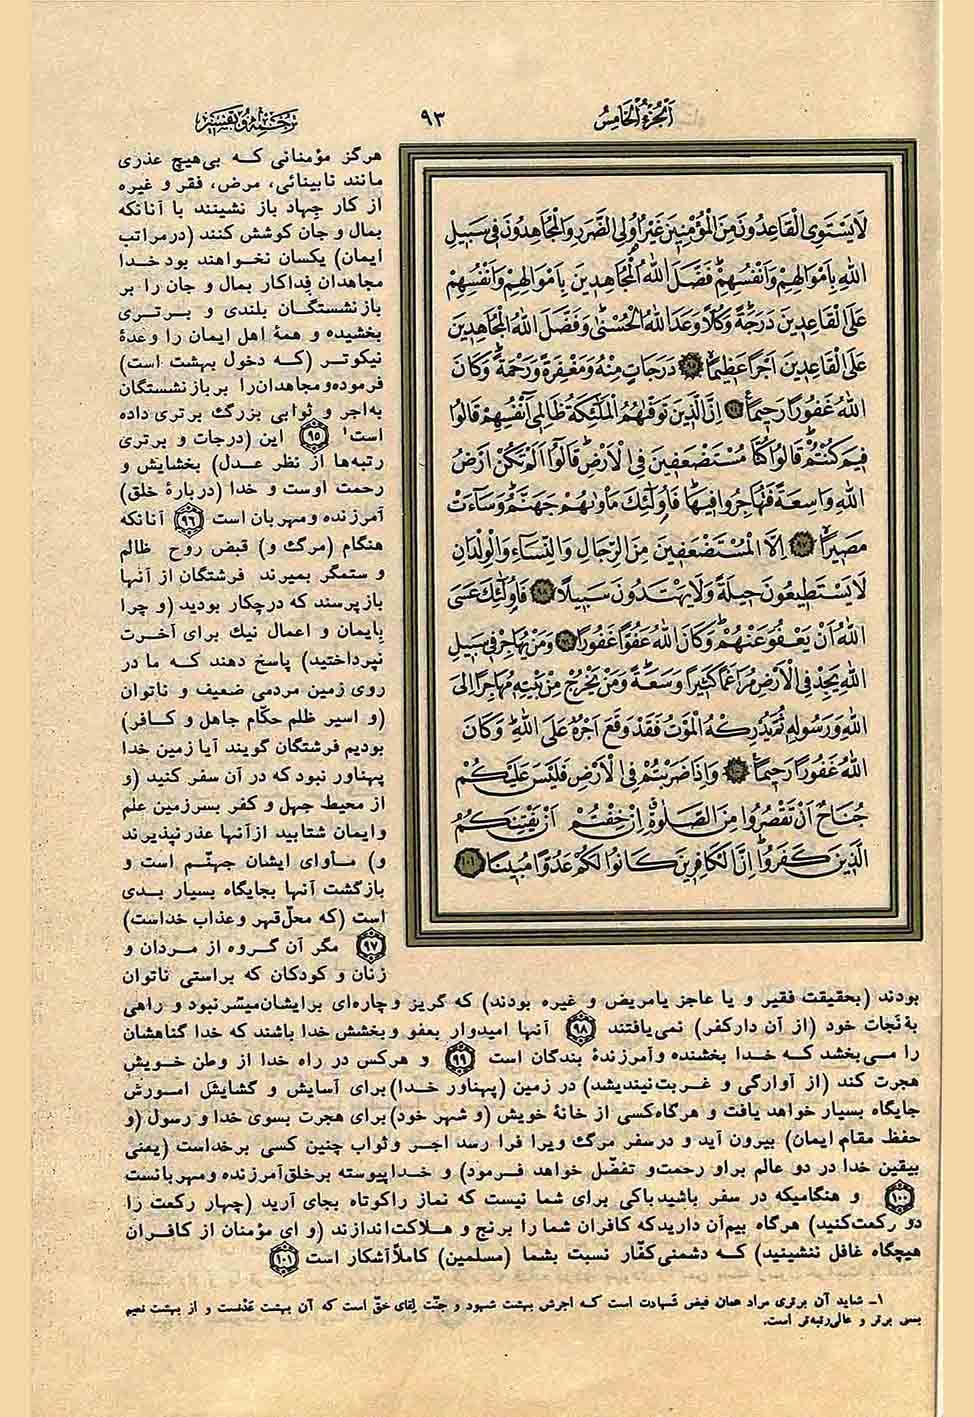 اَلْجُزْءُ الْخَامِسُ
۹۳
ترجمه و تفسیر
لَا يَسْتَوِي الْقَاعِدُونَ مِنَ الْمُؤْمِنِينَ غَيْرُ أُولِي الضَّرَرِ وَالْمُجَاهِدُونَ فِي سَبِيلِ
اللَّهِ بِأَمْوَالِهِمْ وَأَنْفُسِهِمْ فَضَّلَ اللَّهُ الْمُجَاهِدِينَ بِأَمْوَالِهِمْ وَأَنْفُسِهِمْ
عَلَى الْقَاعِدِينَ دَرَجَةً وَكُلًّا وَعَدَ اللَّهُ الْحُسْنَى وَفَضَّلَ اللَّهُ الْمُجَاهِدِينَ
عَلَى الْقَاعِدِينَ أَجْرًا عَظِيمًا ۹۵ دَرَجَاتٍ مِنْهُ وَمَغْفِرَةً وَرَحْمَةً وَكَانَ
اللَّهُ غَفُورًا رَحِيمًا ۹۶ إِنَّ الَّذِينَ تَوَفَّيهُمُ الْمَلَٰئِكَةُ ظَالِمِي أَنْفُسِهِمْ قَالُوا
فِيمَ كُنْتُمْ قَالُوا كُنَّا مُسْتَضْعَفِينَ فِي الْأَرْضِ قَالُوا أَلَمْ تَكُنْ أَرْضُ
اللَّهِ وَاسِعَةً فَتُهَاجِرُوا فِيهَا فَأُولَٰئِكَ مَأْوٰيهُمْ جَهَنَّمُ وَسَاءَتْ
مَصِيرًا ۹۷ إِلَّا الْمُسْتَضْعَفِينَ مِنَ الرِّجَالِ وَالنِّسَاءِ وَالْوِلْدَانِ
لَا يَسْتَطِيعُونَ حِيلَةً وَلَا يَهْتَدُونَ سَبِيلًا ۹۸ فَأُولَٰئِكَ عَسَى
اللَّهُ أَنْ يَعْفُوَ عَنْهُمْ وَكَانَ اللَّهُ عَفُوًّا غَفُورًا ۹۹ وَمَنْ يُهَاجِرْ فِي سَبِيلِ
اللَّهِ يَجِدْ فِي الْأَرْضِ مُرَاغَمًا كَثِيرًا وَسَعَةً وَمَنْ يَخْرُجْ مِنْ بَيْتِهِ مُهَاجِرًا إِلَى
اللَّهِ وَرَسُولِهِ ثُمَّ يُدْرِكْهُ الْمَوْتُ فَقَدْ وَقَعَ أَجْرُهُ عَلَى اللَّهِ وَكَانَ
اللَّهُ غَفُورًا رَحِيمًا ۱۰۰ وَإِذَا ضَرَبْتُمْ فِي الْأَرْضِ فَلَيْسَ عَلَيْكُمْ
جُنَاحٌ أَنْ تَقْصُرُوا مِنَ الصَّلٰوةِ إِنْ خِفْتُمْ أَنْ يَفْتِنَكُمُ
الَّذِينَ كَفَرُوا إِنَّ الْكَافِرِينَ كَانُوا لَكُمْ عَدُوًّا مُبِينًا ۱۰۱
هرگز مؤمنانی که بی‌هیچ عذری
مانند نابینائی، مرض، فقر و غیره
از کار جهاد باز نشینند با آنانکه
بمال و جان کوشش کنند (درمراتب
ایمان) یکسان نخواهند بود خدا
مجاهدان فداکار بمال و جان را بر
بازنشستگان بلندی و برتری
بخشیده و همهٔ اهل ایمان را وعدهٔ
نیکوتر (که دخول بهشت است)
فرموده و مجاهدان را بر بازنشستگان
به‌اجر و ثوابی بزرگ برتری داده
است۱ ۹۵ این (درجات و برتری
رتبه‌ها از نظر عدل) بخشایش و
رحمت اوست و خدا (دربارهٔ خلق)
آمرزنده و مهربان است ۹۶ آنانکه
هنگام (مرگ و) قبض روح ظالم
و ستمگر بمیرند فرشتگان از آنها
بازپرسند که درچکار بودید (و چرا
بایمان و اعمال نیك برای آخرت
نپرداختید) پاسخ دهند که ما در
روی زمین مردمی ضعیف و ناتوان
(و اسیر ظلم حکّام جاهل و کافر)
بودیم فرشتگان گویند آیا زمین خدا
پهناور نبود که در آن سفر کنید (و
از محیط جهل و کفر بسرزمین علم
و ایمان شتابید ازآنها عذر نپذیرند
و) مأوای ایشان جهنّم است و
بازگشت آنها بجایگاه بسیار بدی
است (که محلّ قهر و عذاب خداست)
۹۷ مگر آن گروه از مردان و
زنان و کودکان که براستی ناتوان
بودند (بحقیقت فقیر و یا عاجز یا مریض و غیره بودند) که گریز و چاره‌ای برایشان میسّر نبود و راهی
به نجات خود (از آن دارکفر) نمی‌یافتند ۹۸ آنها امیدوار بعفو و بخشش خدا باشند که خدا گناهشان
را می‌بخشد که خدا بخشنده و آمرزندهٔ بندگان است ۹۹ و هرکس در راه خدا از وطن خویش
هجرت کند (از آوارگی و غربت نیندیشد) در زمین (پهناور خدا) برای آسایش و گشایش امورش
جایگاه بسیار خواهد یافت و هرگاه کسی از خانهٔ خویش (و شهر خود) برای هجرت بسوی خدا و رسول (و
حفظ مقام ایمان) بیرون آید و درسفر مرگ ویرا فرا رسد اجر و ثواب چنین کسی برخداست (یعنی
بیقین خدا در دو عالم براو رحمت و تفضّل خواهد فرمود) و خدا پیوسته برخلق آمرزنده و مهربانست
۱۰۰ و هنگامیکه در سفر باشید باکی برای شما نیست که نماز را کوتاه بجای آرید (چهار رکعت را
دو رکعت کنید) هرگاه بیم آن دارید که کافران شما را برنج و هلاکت اندازند (و ای مؤمنان از کافران
هیچگاه غافل ننشینید) که دشمنی کفّار نسبت بشما (مسلمین) کاملاً آشکار است ۱۰۱
۱ـ شاید آن برتری مراد همان فیض شهادت است که اجرش بهشت شهود و جنّت لقای حقّ است که آن بهشت عَدْنست و از بهشت نعیم
بسی برتر و عالی‌رتبه‌تر است.